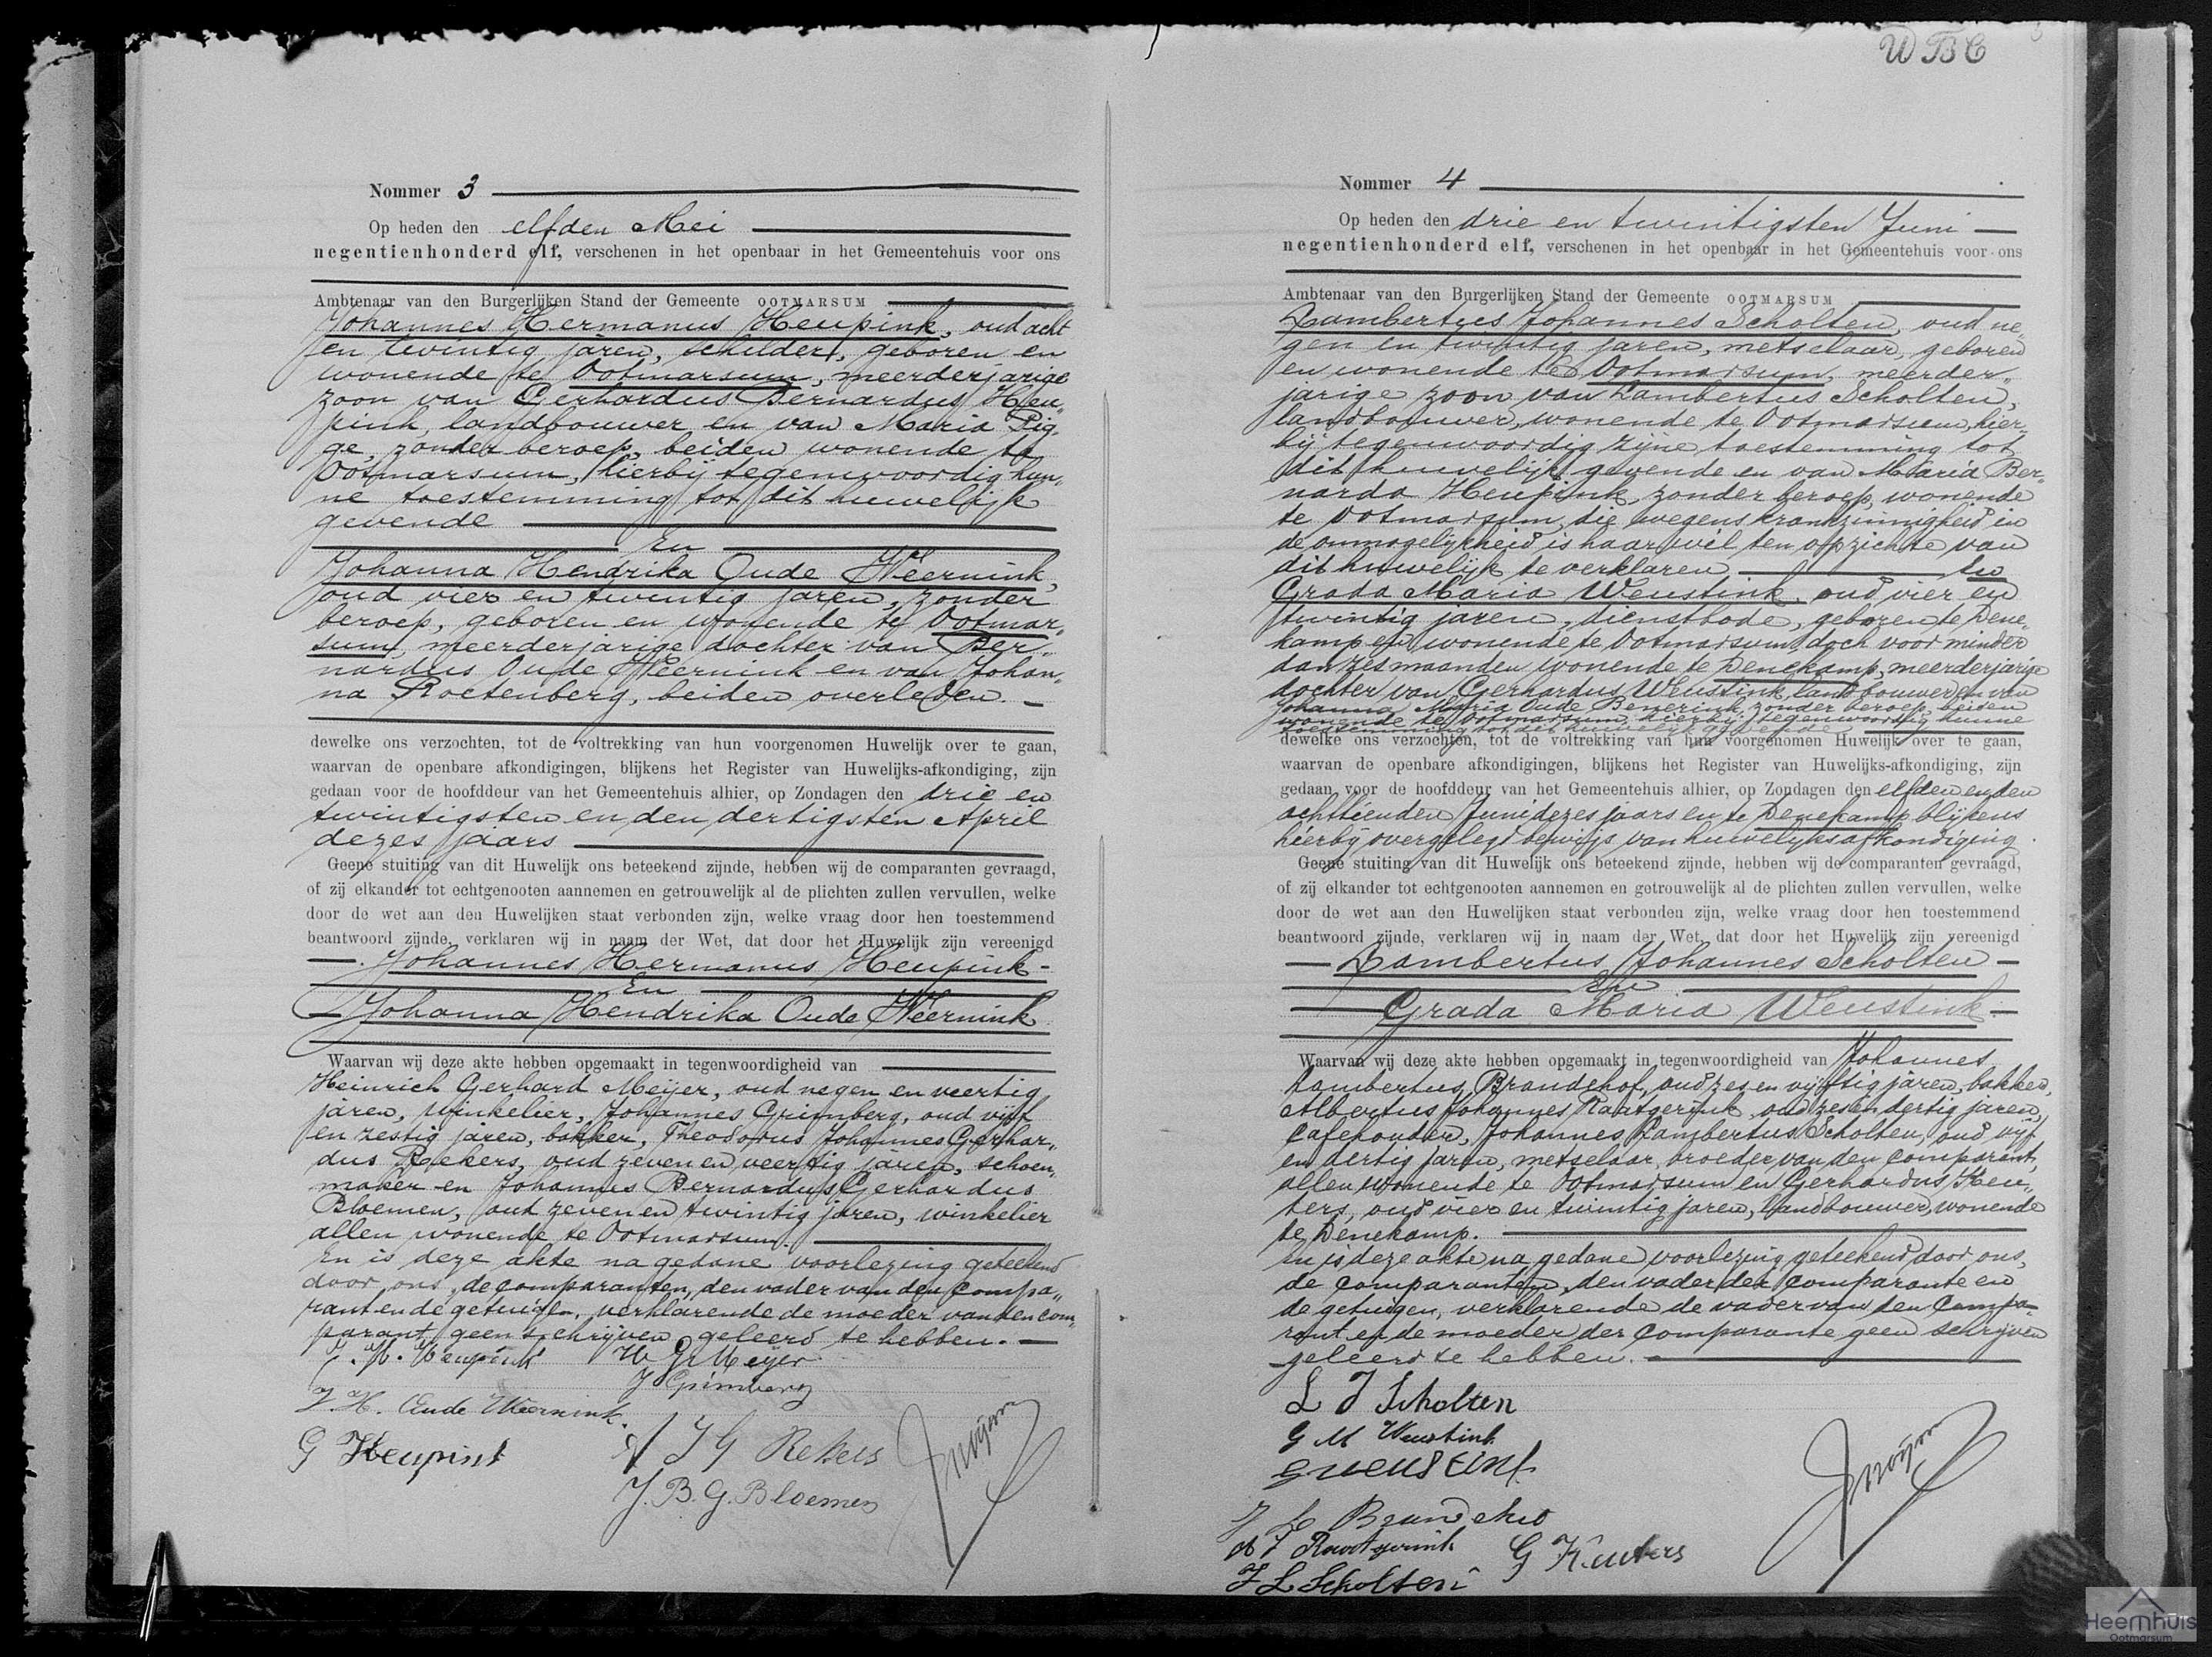 Nommer 3
Op heden den elfden Mei
negentienhonderd elf, verschenen in het openbaar in het Gemeentehuis voor ons
Ambtenaar van den Burgerlijken Stand der Gemeente OOTMARSUM
Johannes Hermanus Heupink, oud acht
en twintig jaren, schilder, geboren en
wonende te Ootmarsum, meerderjarige
zoon van Gerhardus Bernardus Heu„
pink, landbouwer en van Maria Pig„
ge, zonder beroep, beiden wonende te
Ootmarsum, hierbij tegenwoordig hun„
ne toestemming tot dit huwelijk
gevende
En
Johanna Hendrika Oude Weernink,
oud vier en twintig jaren, zonder
beroep, geboren en wonende te Ootmar„
sum, meerderjarige dochter van Ber„
nardus Oude Weernink en van Johan„
na Roetenberg, beiden overleden.
dewelke ons verzochten, tot de voltrekking van hun voorgenomen Huwelijk over te gaan,
waarvan de openbare afkondigingen, blijkens het Register van Huwelijks-afkondiging, zijn
gedaan voor de hoofddeur van het Gemeentehuis alhier, op Zondagen den drie en
twintigsten en den dertigsten April
dezes jaars
Geene stuiting van dit Huwelijk ons beteekend zijnde, hebben wij de comparanten gevraagd,
of zij elkander tot echtgenooten aannemen en getrouwelijk al de plichten zullen vervullen, welke
door de wet aan den Huwelijken staat verbonden zijn, welke vraag door hen toestemmend
beantwoord zijnde, verklaren wij in naam der Wet, dat door het Huwelijk zijn vereenigd
Johannes Hermanus Heupink
En
Johanna Hendrika Oude Weernink
Waarvan wij deze akte hebben opgemaakt in tegenwoordigheid van
Heinrich Gerhard Meijer, oud negen en veertig
jaren, winkelier, Johannes Grimberg, oud vijf
en zestig jaren, bakker, Theodorus Johannes Gerhar„
dus Reekers, oud zeven en veertig jaren, schoen„
maker en Johannes Bernardus Gerhardus
Bloemen, oud zeven en twintig jaren, winkelier
allen wonende te Ootmarsum.
En is deze akte na gedane voorlezing geteekend
door ons, de comparanten, den vader van den compa„
rant en de getuigen, verklarende de moeder van den com„
parant geen schrijven geleerd te hebben.
J. H. Heupink H G Meijer
J Grimberg
J. H. Oude Weernink.
G Heupink T J G Rekers
J. B. G. Bloemen
W B C
Nommer 4
Op heden den drie en twintigsten Juni
negentienhonderd elf, verschenen in het openbaar in het Gemeentehuis voor ons
Ambtenaar van den Burgerlijken Stand der Gemeente OOTMARSUM
Lambertus Johannes Scholten, oud ne„
gen en twintig jaren, metselaar, geboren
en wonende te Ootmarsum, meerder„
jarige zoon van Lambertus Scholten,
landbouwer, wonende te Ootmarsum, hier„
bij tegenwoordig zijne toestemming tot
dit huwelijk gevende en van Maria Ber„
narda Heupink, zonder beroep, wonende
te Ootmarsum, die wegens krankzinnigheid in
de onmogelijkheid is haar wil ten opzichte van
dit huwelijk te verklaren en
Grada Maria Weustink, oud vier en
twintig jaren, dienstbode, geboren te Dene„
kamp en wonende te Ootmarsum, doch voor minder
dan zes maanden wonende te Denekamp, meerderjarige
dochter van Gerhardus Weustink, landbouwer en van
Johanna Maria Oude Benerink, zonder beroep, beiden
wonende te Ootmarsum, hierbij tegenwoordig hunne
toestemming tot dit huwelijk gevende
dewelke ons verzochten, tot de voltrekking van hun voorgenomen Huwelijk over te gaan,
waarvan de openbare afkondigingen, blijkens het Register van Huwelijks-afkondiging, zijn
gedaan voor de hoofddeur van het Gemeentehuis alhier, op Zondagen den elfden en den
achttienden Juni dezes jaars en te Denekamp blijkens
hierbij overgelegd bewijs van huwelijksafkondiging.
Geene stuiting van dit Huwelijk ons beteekend zijnde, hebben wij de comparanten gevraagd,
of zij elkander tot echtgenooten aannemen en getrouwelijk al de plichten zullen vervullen, welke
door de wet aan den Huwelijken staat verbonden zijn, welke vraag door hen toestemmend
beantwoord zijnde, verklaren wij in naam der Wet, dat door het Huwelijk zijn vereenigd
Lambertus Johannes Scholten
En
Grada Maria Weustink
Waarvan wij deze akte hebben opgemaakt in tegenwoordigheid van Johannes
Lambertus Brandehof, oud zes en vijftig jaren, bakker,
Albertus Johannes Raatgerink, oud zes en dertig jaren,
Cafehouder, Johannes Lambertus Scholten, oud vijf
en dertig jaren, metselaar, broeder van den comparant,
allen wonende te Ootmarsum en Gerhardus Keu„
ters, oud vier en twintig jaren, landbouwer, wonende
te Denekamp.
En is deze akte na gedane voorlezing geteekend door ons,
de comparanten, den vader der comparante en
de getuigen, verklarende de vader van den Compa„
rant en de moeder der Comparante geen schrijven
geleerd te hebben.
L J Scholten
G M Weustink
G Weustink
J L Brandehof
A J Raatgerink G Keuters
J L Scholten
Heemhuis
Ootmarsum